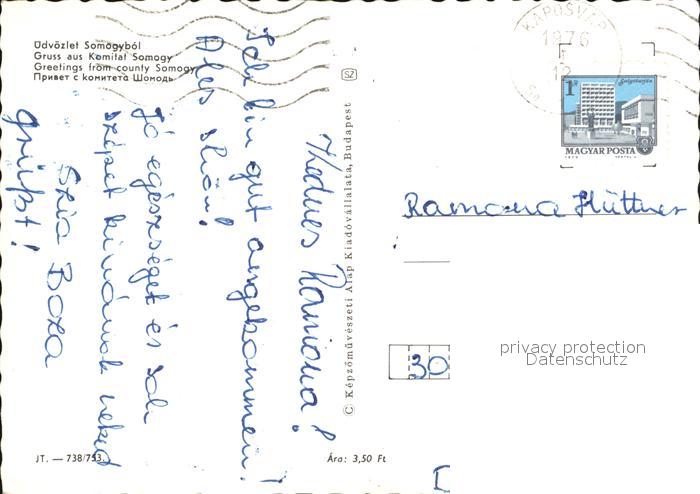 Üdvözlet Somogyból
Gruss aus Komitat Somogy
Greetings from county Somogy
Привет с комитета Шомодь
SZ
KAPOSVÁR
1976
12
1Ft
Salgótarján
MAGYAR POSTA
1973
© Képzőművészeti Alap Kiadóvállalata, Budapest
Kedves Ramona!
Ich bin gut angekommen!
Alles schön!
Jó egészséget és sok
szépet kivánnak neked
Szia Boza
grüßt!
Ramona Hüttner
30
privacy protection
Datenschutz
JT. — 738/753.
Ára: 3,50 Ft